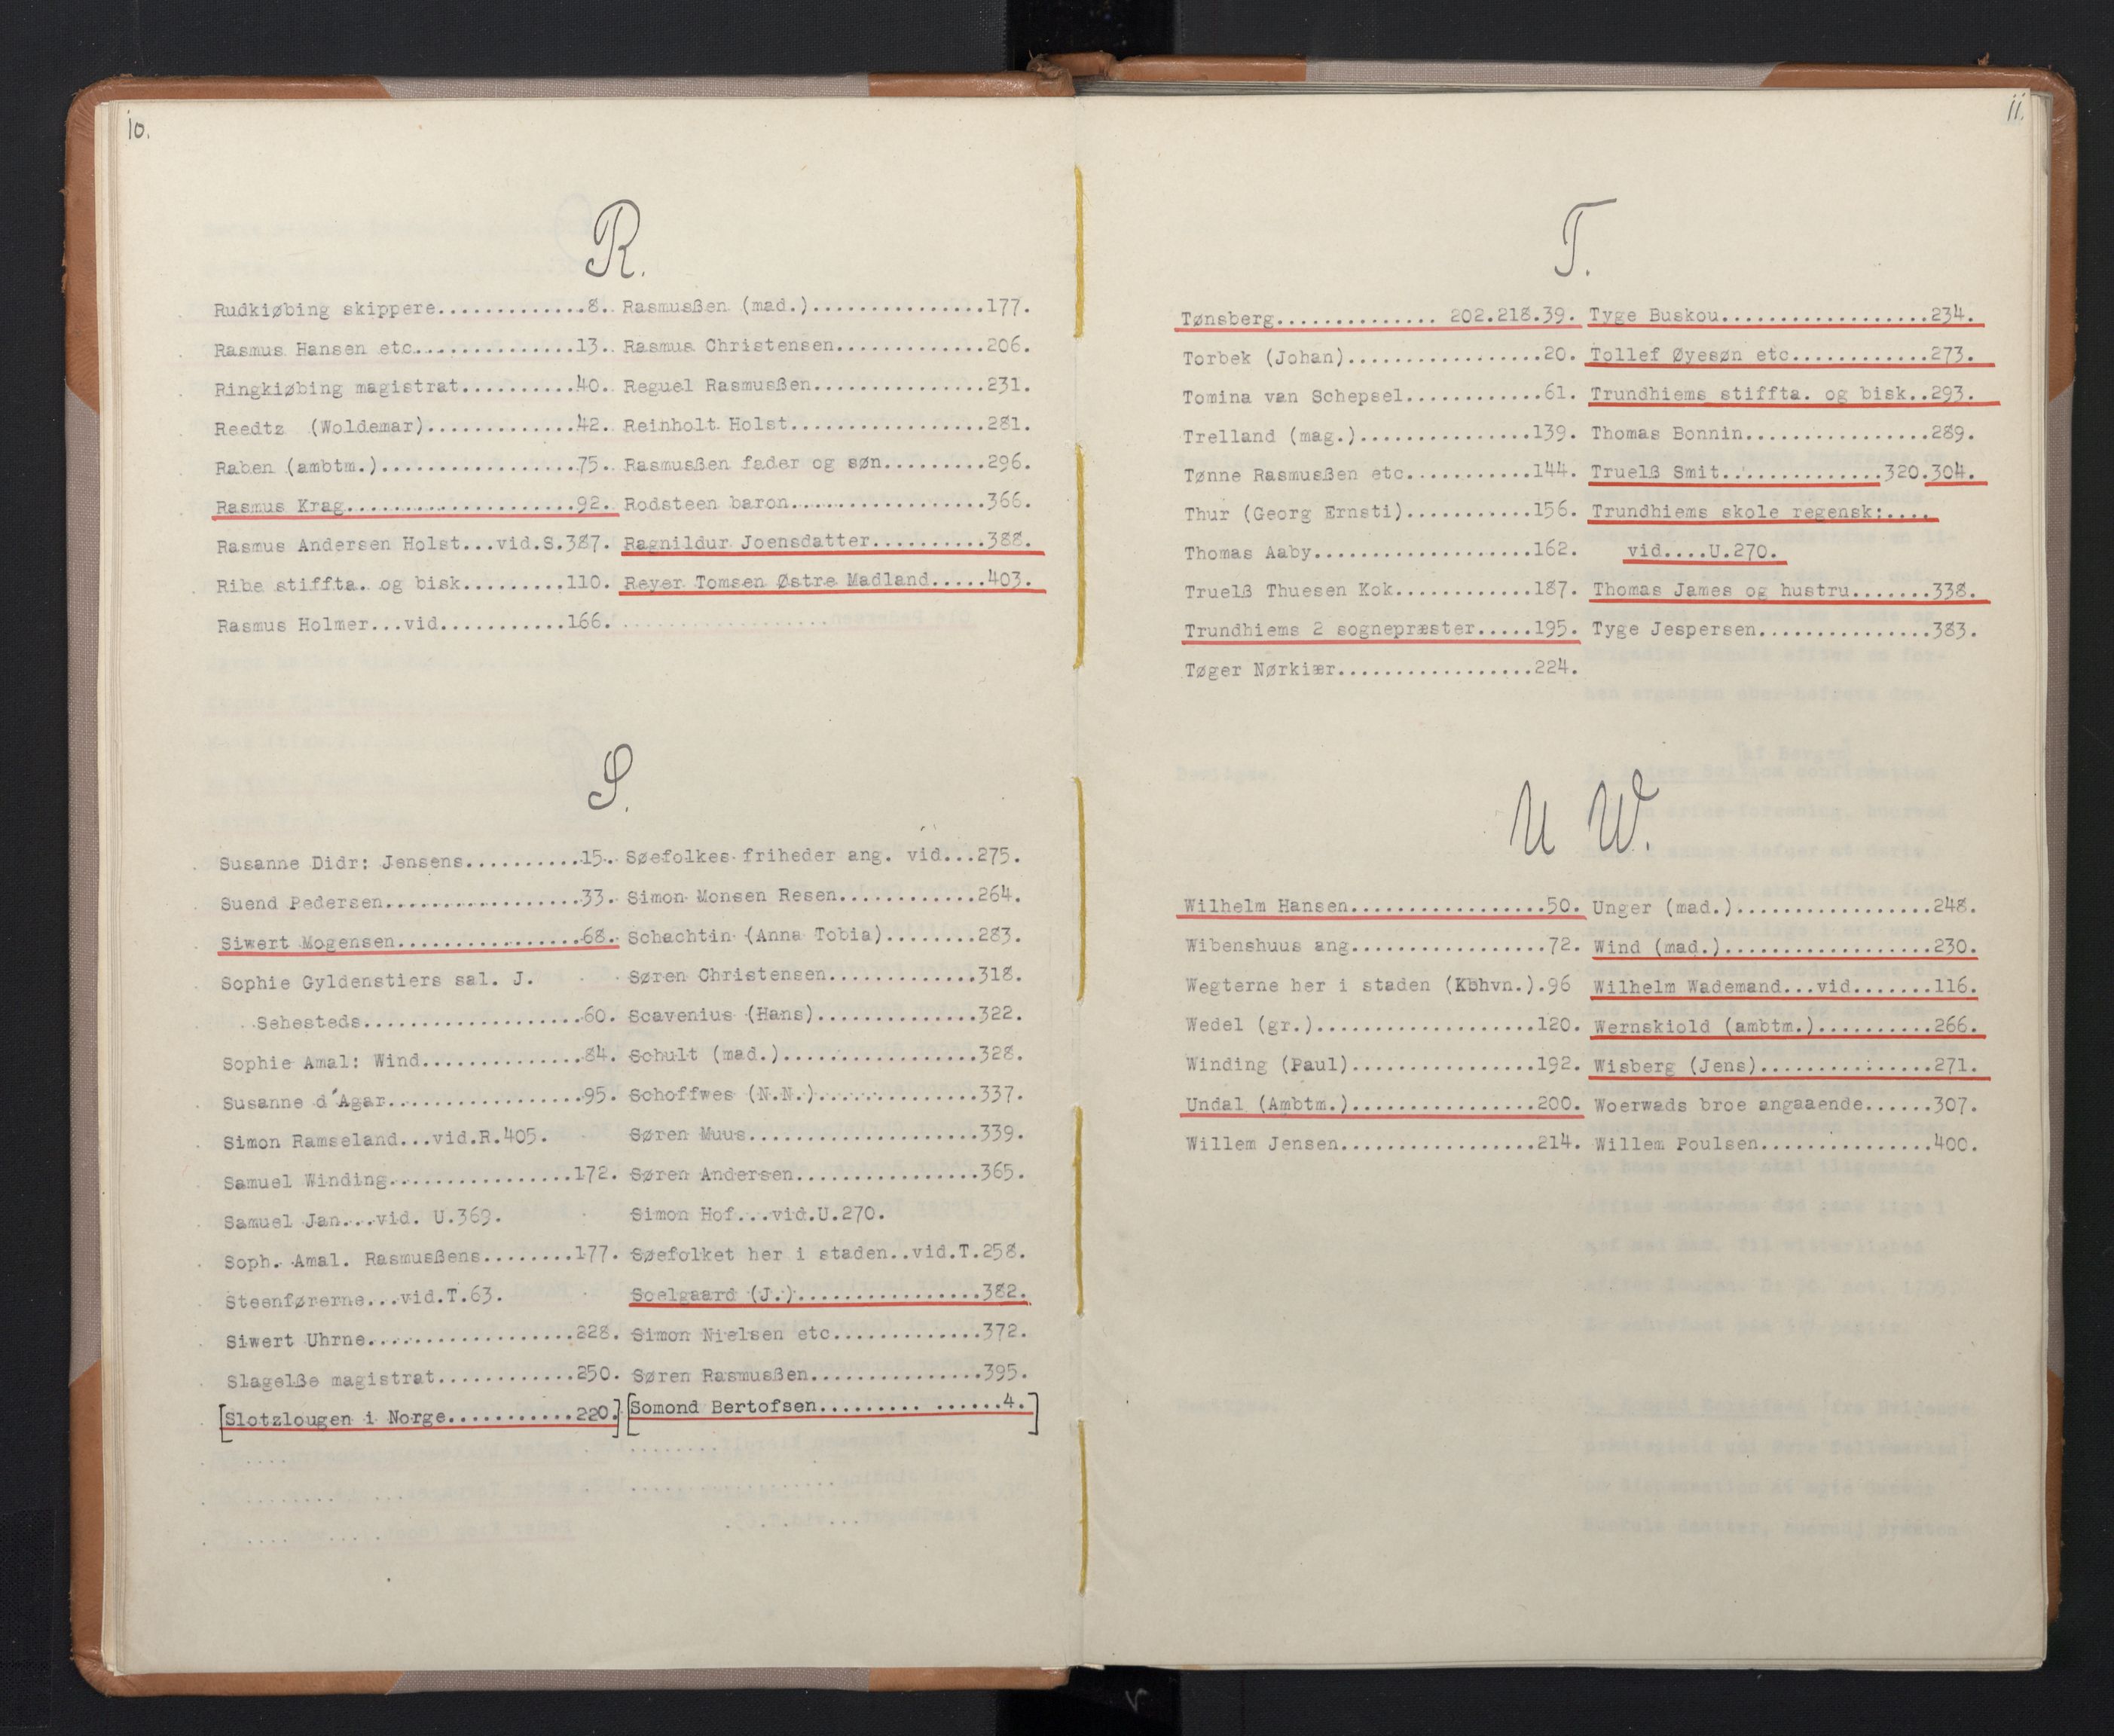 10.
R.
Rudkiøbing skippere..............8.
Rasmus Hansen etc...............13.
Ringkiøbing magistrat..........40.
Reedtz (Woldemar).............42.
Raben (ambtm.)..................75.
Rasmus Krag.....................92.
Rasmus Andersen Holst...vid.S.387.
Ribe stiffta. og bisk.........110.
Rasmus Holmer...vid...........166.
Rasmusßen (mad.)...............177.
Rasmus Christensen.............206.
Reguel Rasmusßen...............231.
Reinholt Holst.................281.
Rasmusßen fader og søn.........296.
Rodsteen baron.................366.
Ragnildur Joensdatter..........388.
Reyer Tomsen Østre Madland.....403.
S.
Susanne Didr: Jensens..........15.
Suend Pedersen.................33.
Siwert Mogensen................68.
Sophie Gyldenstiers sal. J.
Sehesteds...................60.
Sophie Amal: Wind..............84.
Susanne d'Agar.................95.
Simon Ramseland...vid.R.405.
Samuel Winding................172.
Samuel Jan...vid. U.369.
Soph. Amal. Rasmusßens........177.
Steenførerne...vid.T.63.
Siwert Uhrne..................228.
Slagelße magistrat............250.
[Slotzlougen i Norge...........220.]
Søefolkes friheder ang. vid...275.
Simon Monsen Resen............264.
Schachtin (Anna Tobia)........283.
Søren Christensen.............318.
Scavenius (Hans)..............322.
Schult (mad.).................328.
Schoffwes (N.N.)..............337.
Søren Muus....................339.
Søren Andersen................365.
Simon Hof...vid.U.270.
Søefolket her i staden..vid.T.258.
Soelgaard (J.)................382.
Simon Nielsen etc.............372.
Søren Rasmusßen...............395.
[Somond Bertofsen......... ......4.]
11.
T.
Tønsberg.............. 202.218.39.
Torbek (Johan).................20.
Tomina van Schepsel............61.
Trelland (mag.)...............139.
Tønne Rasmusßen etc...........144.
Thur (Georg Ernsti)...........156.
Thomas Aaby...................162.
Truelß Thuesen Kok............187.
Trundhiems 2 sognepræster.....195.
Tøger Nørkiær.................224.
Tyge Buskou..................234.
Tollef Øyesøn etc............273.
Trundhiems stiffta. og bisk..293.
Thomas Bonnin................289.
Truelß Smit..............320.304.
Trundhiems skole regensk:....
vid....U.270.
Thomas James og hustru.......338.
Tyge Jespersen...............383.
U W.
Wilhelm Hansen.................50.
Wibenshuus ang.................72.
Wegterne her i staden (Kbhvn.).96
Wedel (gr.)...................120.
Winding (Paul)................192.
Undal (Ambtm.)................200.
Willem Jensen.................214.
Unger (mad.).................248.
Wind (mad.)..................230.
Wilhelm Wademand...vid.......116.
Wernskiold (ambtm.)..........266.
Wisberg (Jens)...............271.
Woerwads broe angaaende......307.
Willem Poulsen...............400.